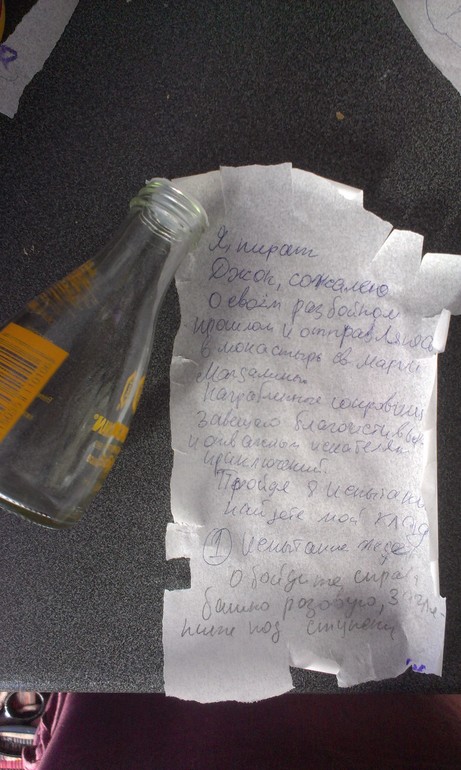 Я, пират
Джон, сожалею
о своём разбойном
прошлом и отправляюсь
в монастырь св. Марии
Магдалины.
Награбленное сокровище
завещаю благочестивым
и отважным искателям
приключений.
Пройдя 8 испытаний
найдёте мой клад
1 Испытание
Обойдите справа
башню розовую, загля-
ните под ступени